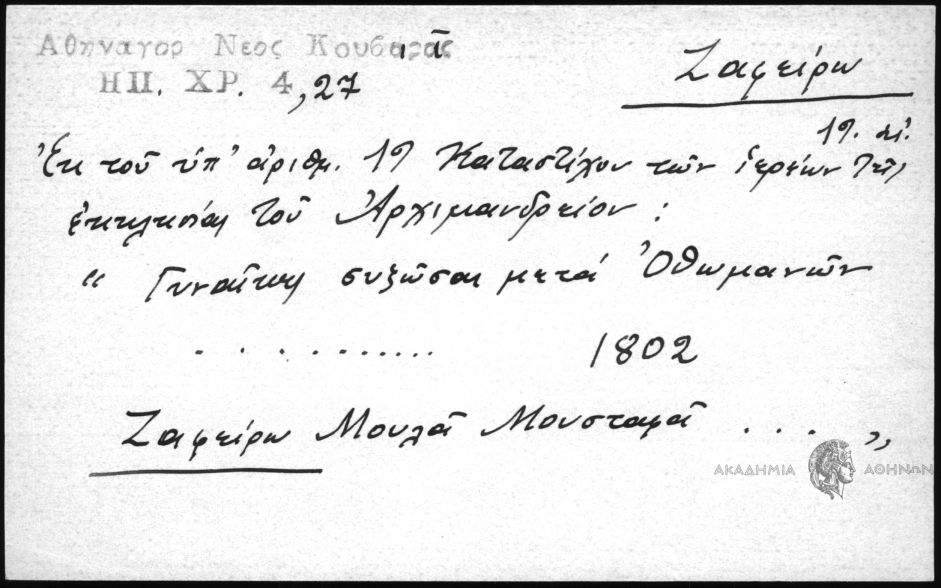 Αθηναγορ Νεος Κουβαρᾶς
ΗΠ. ΧΡ. 4, 27
Ζαφείρω
19. αἰ.
Ἐκ τοῦ ὑπ' ἀριθμ. 19 Καταστίχου τῶν ἱερέων τῆς
ἐκκλησίας τοῦ Ἀρχιμανδρείου :
“ Γυναῖκες συζῶσαι μετά Ὀθωμανῶν
. . . . . . . . . . . 1802
Ζαφείρω Μουλᾶ Μουσταφᾶ . . . . „
ΑΚΑΔΗΜΙΑ ΑΘΗΝΩΝ